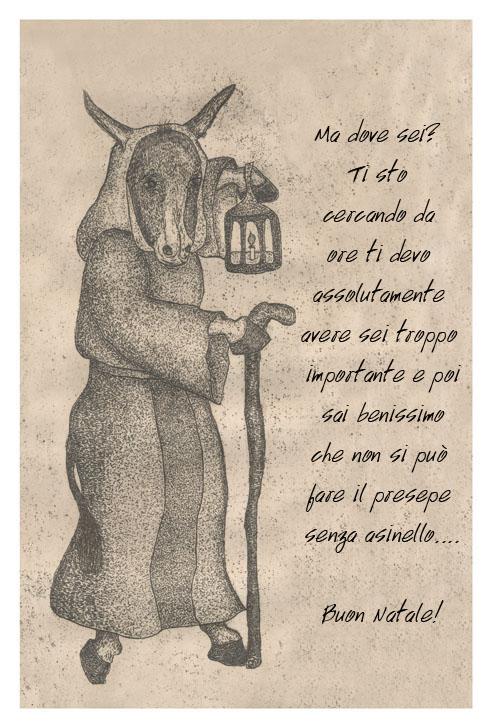 Ma dove sei?
Ti sto
cercando da
ore ti devo
assolutamente
avere sei troppo
importante e poi
sai benissimo
che non si può
fare il presepe
senza asinello....
Buon Natale!